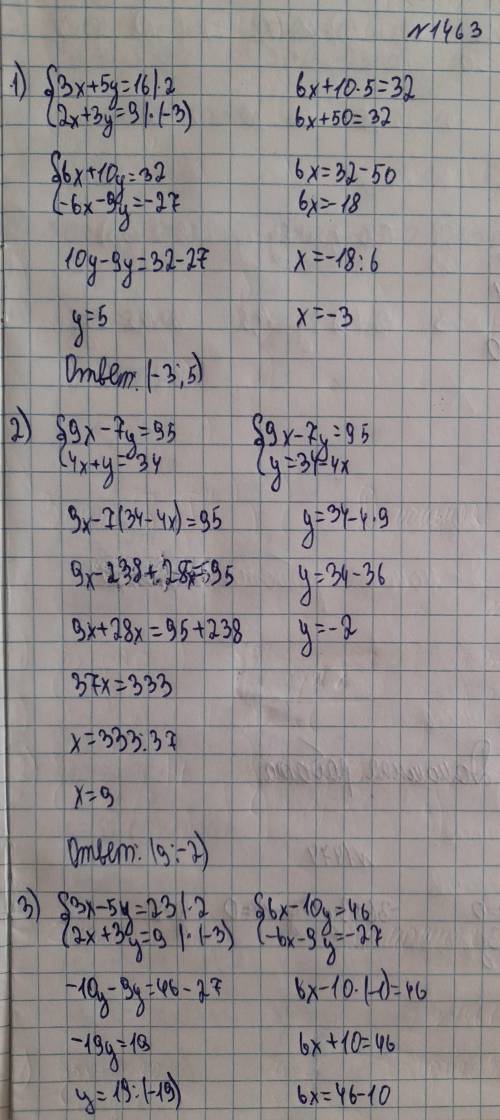 №1463
1) {3x+5y=16|·2
{2x+3y=9|·(-3)
{6x+10y=32
{-6x-9y=-27
10y-9y=32-27
y=5
6x+10·5=32
6x+50=32
6x=32-50
6x=-18
x=-18:6
x=-3
Ответ: (-3;5)
2) {9x-7y=95
{4x+y=34
{9x-7y=95
{y=34-4x
9x-7(34-4x)=95
9x-238+28x=95
9x+28x=95+238
37x=333
x=333:37
x=9
y=34-4·9
y=34-36
y=-2
Ответ: (9;-2)
3) {3x-5y=23|·2
{2x+3y=9|·(-3)
{6x-10y=46
{-6x-9y=-27
-10y-9y=46-27
-19y=19
y=19:(-19)
6x-10·(-1)=46
6x+10=46
6x=46-10